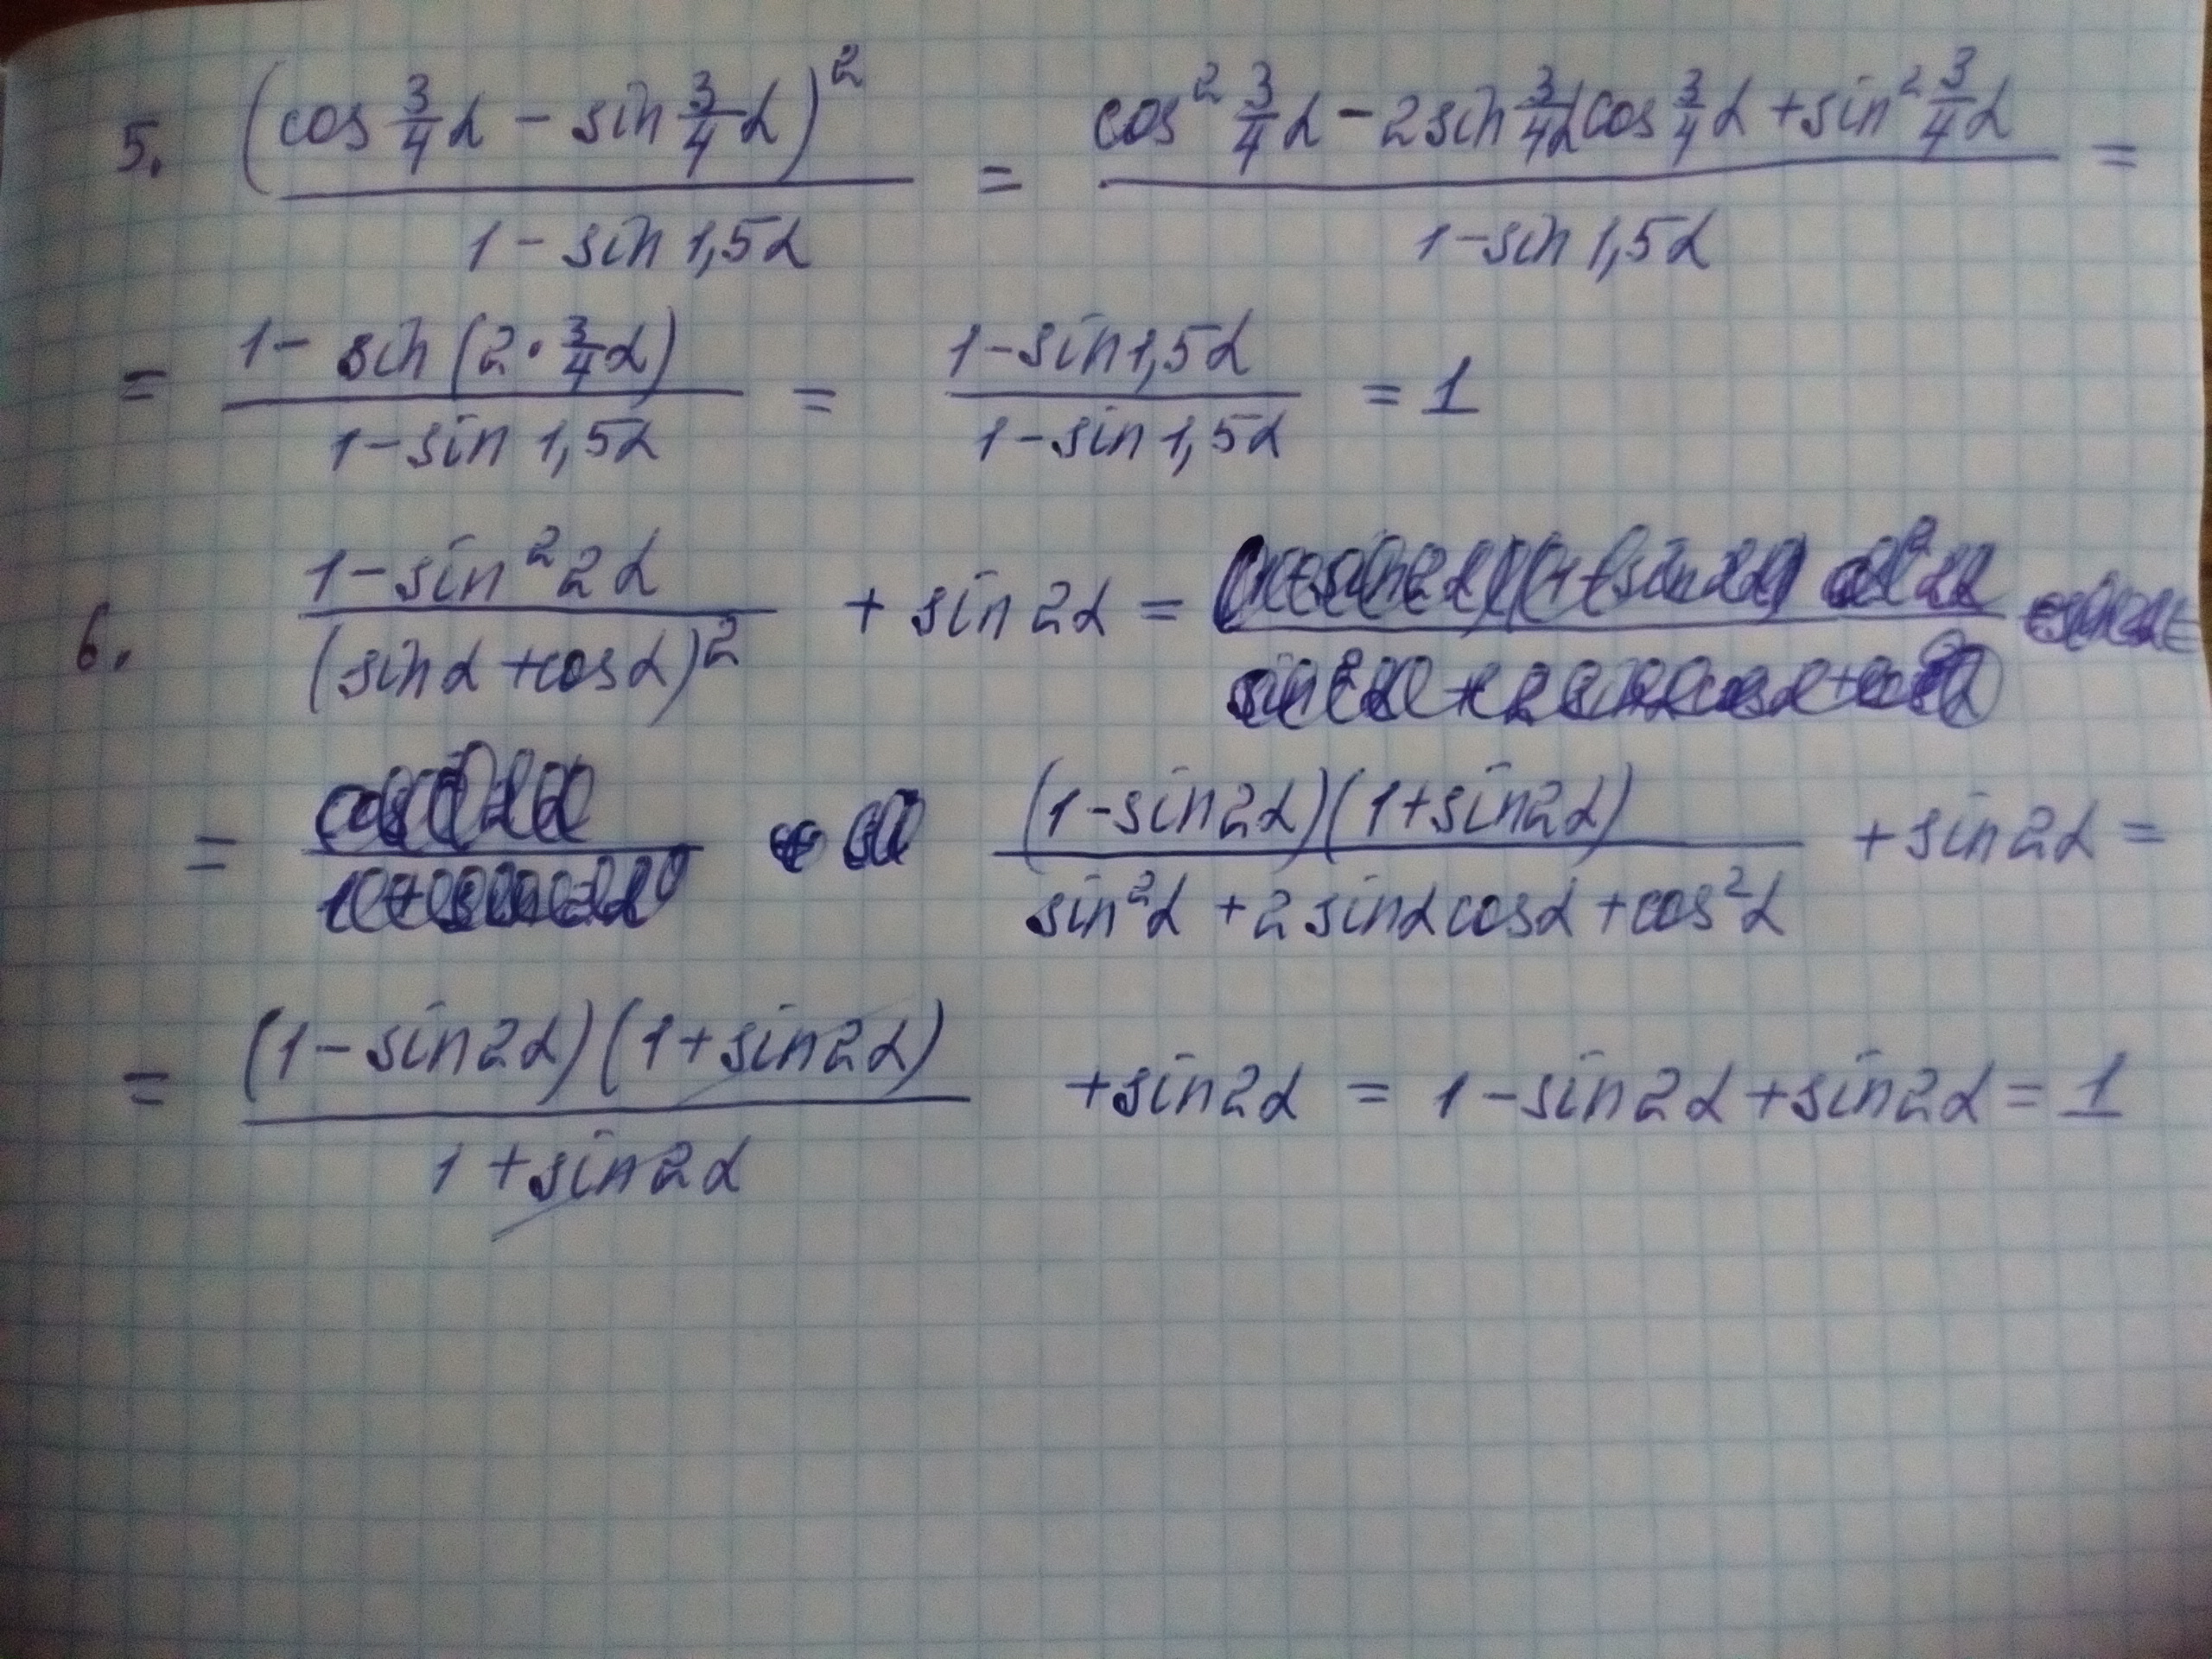 5. (cos 3/4 α - sin 3/4 α)² / (1 - sin 1,5α) = (cos² 3/4 α - 2 sin 3/4 α cos 3/4 α + sin² 3/4 α) / (1 - sin 1,5α) =
= (1 - sin (2 · 3/4 α)) / (1 - sin 1,5α) = (1 - sin 1,5α) / (1 - sin 1,5α) = 1
6. (1 - sin² 2α) / (sin α + cos α)² + sin 2α =
= (1 - sin 2α)(1 + sin 2α) / (sin² α + 2 sin α cos α + cos² α) + sin 2α =
= (1 - sin 2α)(1 + sin 2α) / (1 + sin 2α) + sin 2α = 1 - sin 2α + sin 2α = 1